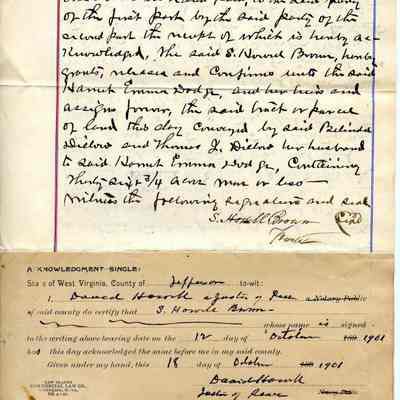 of the first part by the said party of the
second part the receipt of which is hereby ac-
knowledged, The said S. Howell Brown, hereby
grants, releases and Confirms unto the said
Harriet Emma Dodge, and her heirs and
assigns forever, the said tract or parcel
of land this day Conveyed by said Belinda
and Thomas J. her husband
to said Harriet Emma Dodge, Containing
Thirty six & 3/4 Acres more or less
Witness the following signature and seal
S. Howell Brown Seal
Trustee
ACKNOWLEDGMENT-SINGLE:
State of West Virginia, County of Jefferson to-wit:
I, David Howell a Justice of Peace a Notary Public
of said county do certify that S. Howell Brown
whose name is signed
to the writing above bearing date on the 12 day of October 1901
has this day acknowledged the same before me in my said county.
Given under my hand, this 18 day of October 1901
David Howell
Justice of Peace